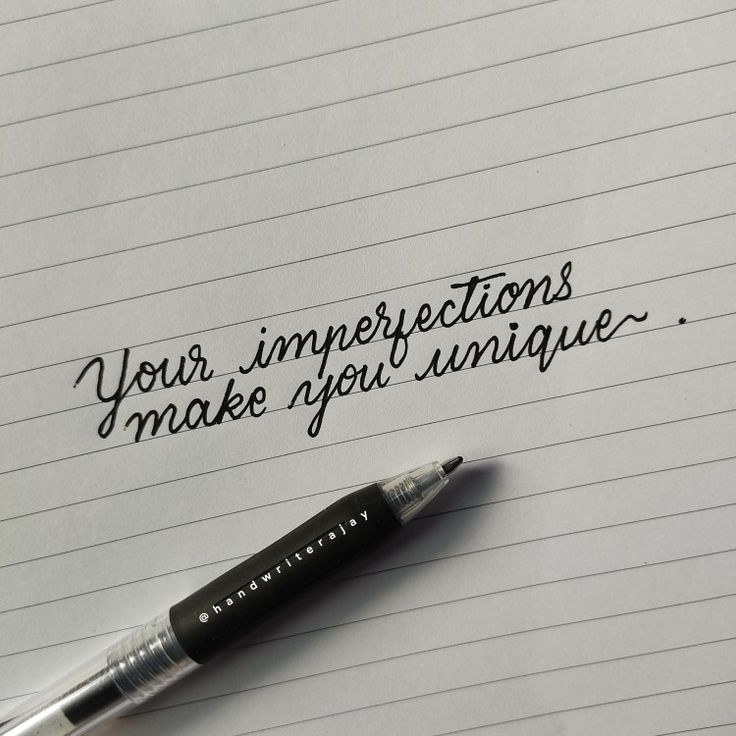 Your imperfections
make you unique~.
@handwriterajay